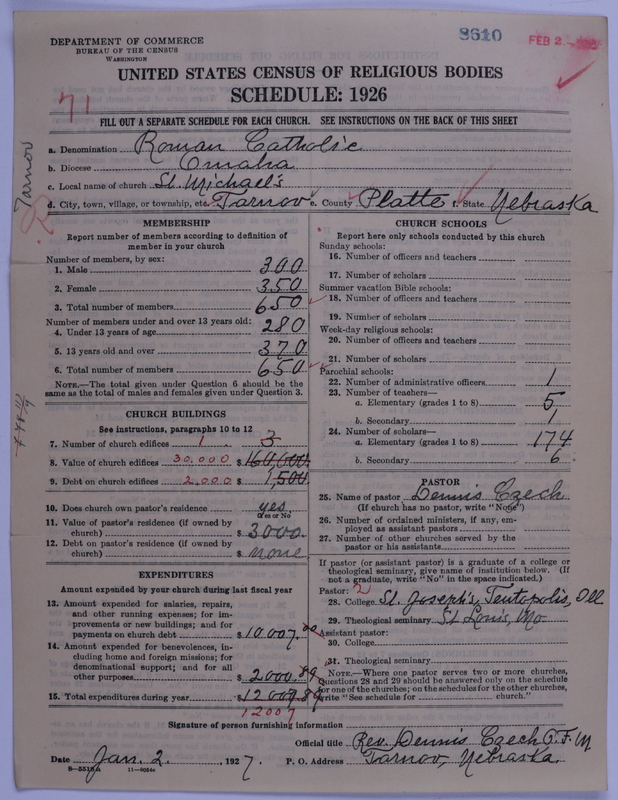 8610
FEB 2
DEPARTMENT OF COMMERCE
BUREAU OF THE CENSUS
WASHINGTON
UNITED STATES CENSUS OF RELIGIOUS BODIES
SCHEDULE: 1926
71
FILL OUT A SEPARATE SCHEDULE FOR EACH CHURCH. SEE INSTRUCTIONS ON THE BACK OF THIS SHEET
Tarnov
a. Denomination Roman Catholic
b. Diocese Omaha
c. Local name of church St. Michael's
d. City, town, village, or township, etc. Tarnov e. County Platte f. State Nebraska
MEMBERSHIP
Report number of members according to definition of
member in your church
Number of members, by sex:
1. Male 300
2. Female 350
3. Total number of members 650
Number of members under and over 13 years old:
4. Under 13 years of age 280
5. 13 years old and over 370
6. Total number of members 650
NOTE.—The total given under Question 6 should be the
same as the total of males and females given under Question 3.
CHURCH BUILDINGS
See instructions, paragraphs 10 to 12
7. Number of church edifices 1 3
8. Value of church edifices 30,000 $ 160,000
9. Debt on church edifices 2,000 $ 1,500
10. Does church own pastor's residence yes
(Yes or No)
11. Value of pastor's residence (if owned by
church) $ 3000.
12. Debt on pastor's residence (if owned by
church) $ none
EXPENDITURES
Amount expended by your church during last fiscal year
13. Amount expended for salaries, repairs,
and other running expenses; for im-
provements or new buildings; and for
payments on church debt $ 10007.00
14. Amount expended for benevolences, in-
cluding home and foreign missions; for
denominational support; and for all
other purposes $ 2000.89
15. Total expenditures during year $ 12007.89
12007
CHURCH SCHOOLS
Report here only schools conducted by this church
Sunday schools:
16. Number of officers and teachers
17. Number of scholars
Summer vacation Bible schools:
18. Number of officers and teachers
19. Number of scholars
Week-day religious schools:
20. Number of officers and teachers
21. Number of scholars
Parochial schools:
22. Number of administrative officers 1
23. Number of teachers—
a. Elementary (grades 1 to 8) 5
b. Secondary 1
24. Number of scholars—
a. Elementary (grades 1 to 8) 174
b. Secondary 6
PASTOR
25. Name of pastor Dennis Czech
(If church has no pastor, write "None")
26. Number of ordained ministers, if any, em-
ployed as assistant pastors
27. Number of other churches served by the
pastor or his assistants
If pastor (or assistant pastor) is a graduate of a college or
theological seminary, give name of institution below. (If
not a graduate, write "No" in the space indicated.)
Pastor: 2
28. College St. Joseph's, Teutopolis, Ill
29. Theological seminary St Louis, Mo
Assistant pastor:
30. College
31. Theological seminary
NOTE.—Where one pastor serves two or more churches,
Questions 28 and 29 should be answered only on the schedule
for one of the churches; on the schedules for the other churches,
write "See schedule for church."
Signature of person furnishing information
Official title Rev. Dennis Czech O.F.M
Date Jan. 2, 1927. P. O. Address Tarnov, Nebraska.
8—5518a 11—9054a